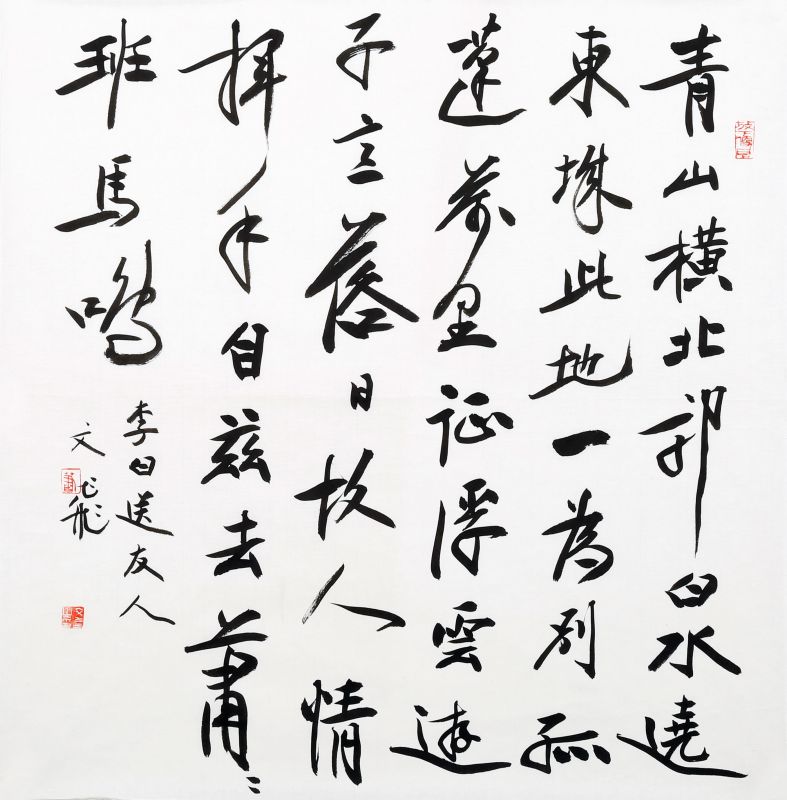 青山橫北郭白水遶
東城此地一為別孤
蓬萬里征浮雲遊
子意落日故人情
揮手自茲去蕭〻
班馬鳴
李白送友人
文飛